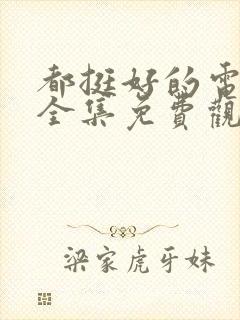 都挺好的電
全集免費觀
梁家虎牙妹